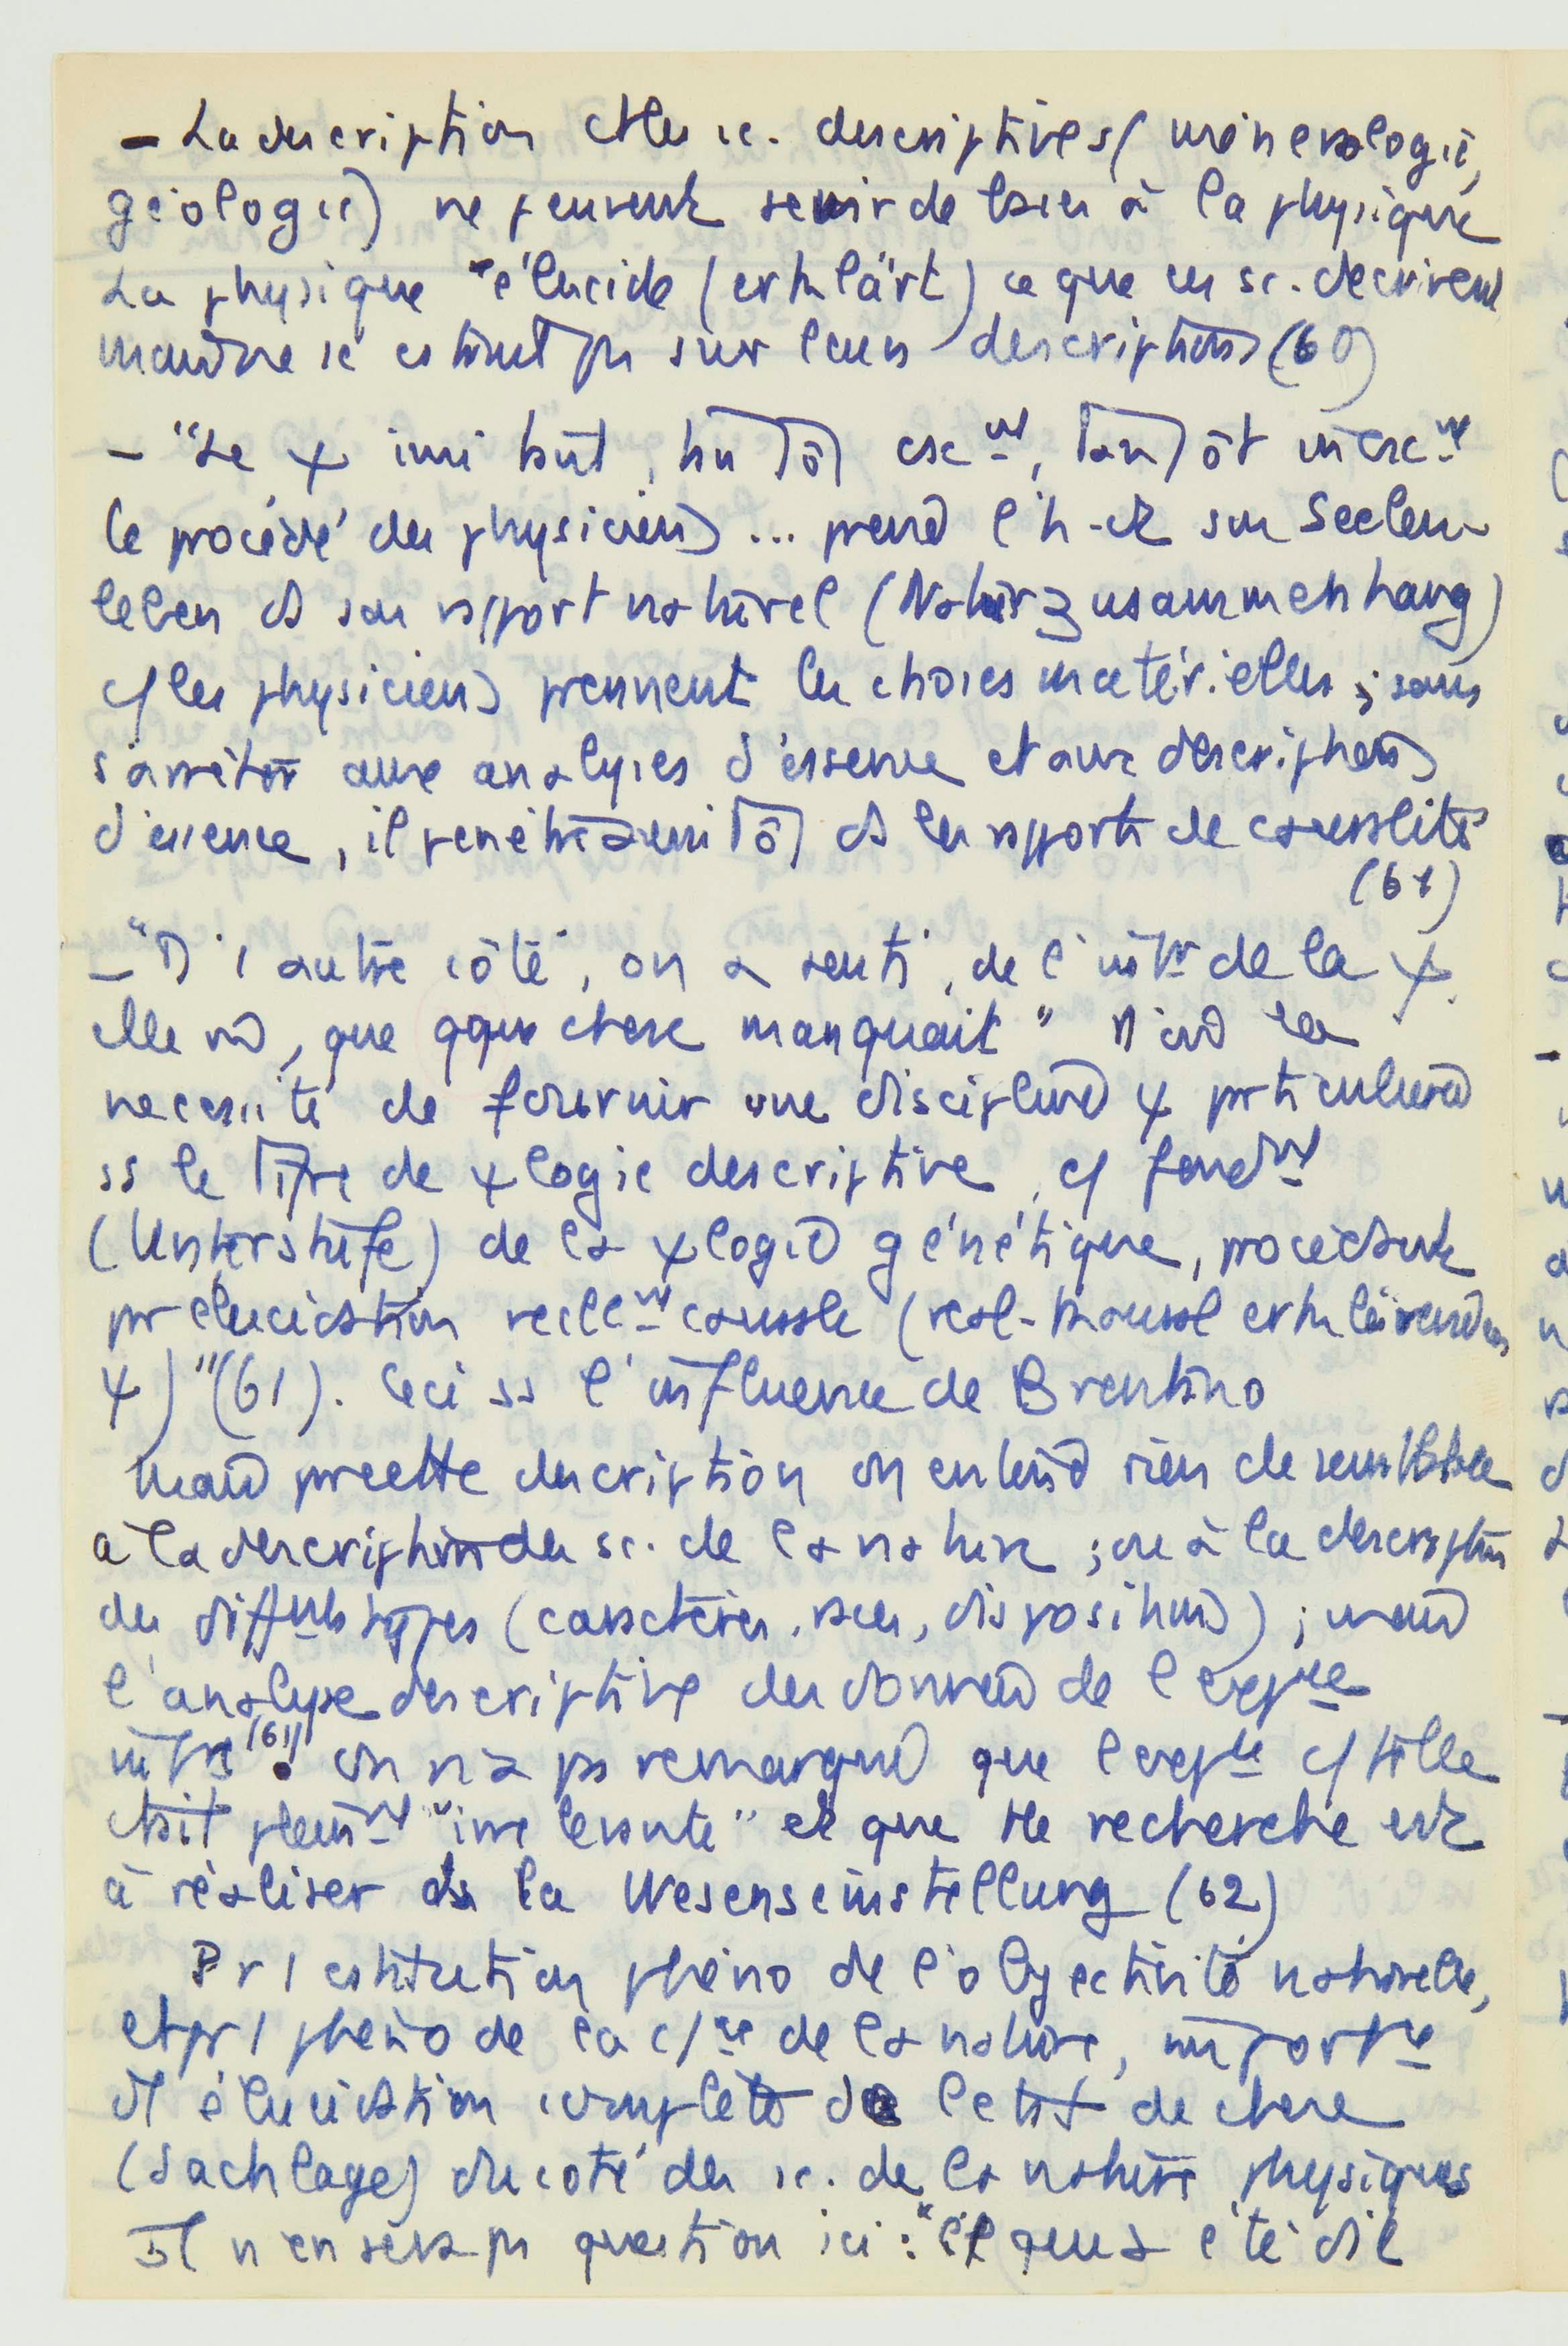 - La description et les sc. descriptives (minéralogie,
géologie) ne peuvent servir de base à la physique
La physique "élucide (erklärt) ce que ces sc. décrivent
mais ne se pas sur leurs descriptions (60)
- "La ψ imitant, tantôt csc^nt, tantôt incsc^nt
le procédé des physiciens ... prend l'h. et son Seelen-
leben ds son rapport naturel (Naturzusammenhang)
c/ les physiciens prennent les choses matérielles ; sans
s'arrêter aux analyses d'essence et aux descriptions
d'essence, il pénètre aussitôt ds les rapports de causalité
(61)
- "D'1 autre côté, on a senti, de l'intr de la ψ
elle m̂, que qque chose manquait" D'où la
nécessité de fournir une discipline ψ particulière
ss le titre de ψlogie descriptive, c/ fond^nt
(Unterstufe) de la ψlogie génétique, procédant
pr élucidation réelle^nt causale (real-kausal erklärenden
ψ)" (61). Ceci ss l'influence de Brentano
Mais pr cette description on entend rien de semblable
à la description des sc. de la nature ; ou à la description
des diff^nts types (caractères, races, dispositions) ; mais
l'analyse descriptive des données de l'exp^ce
intre (61). On n'a pas remarqué que l'exp^ce c/ telle
était plein^nt "irrelevante" et que tte recherche est
à réaliser ds la Wesenseinstellung (62)
Pr 1 constitution phéno de l'objectivité naturelle,
et pr 1 phéno de la c/^ce de la nature, import^ce
d'1 élucidation complète de l'état de chose
(Sachlage) du côté des sc. de la nature physiques
Il n'en sera pas question ici : été dit